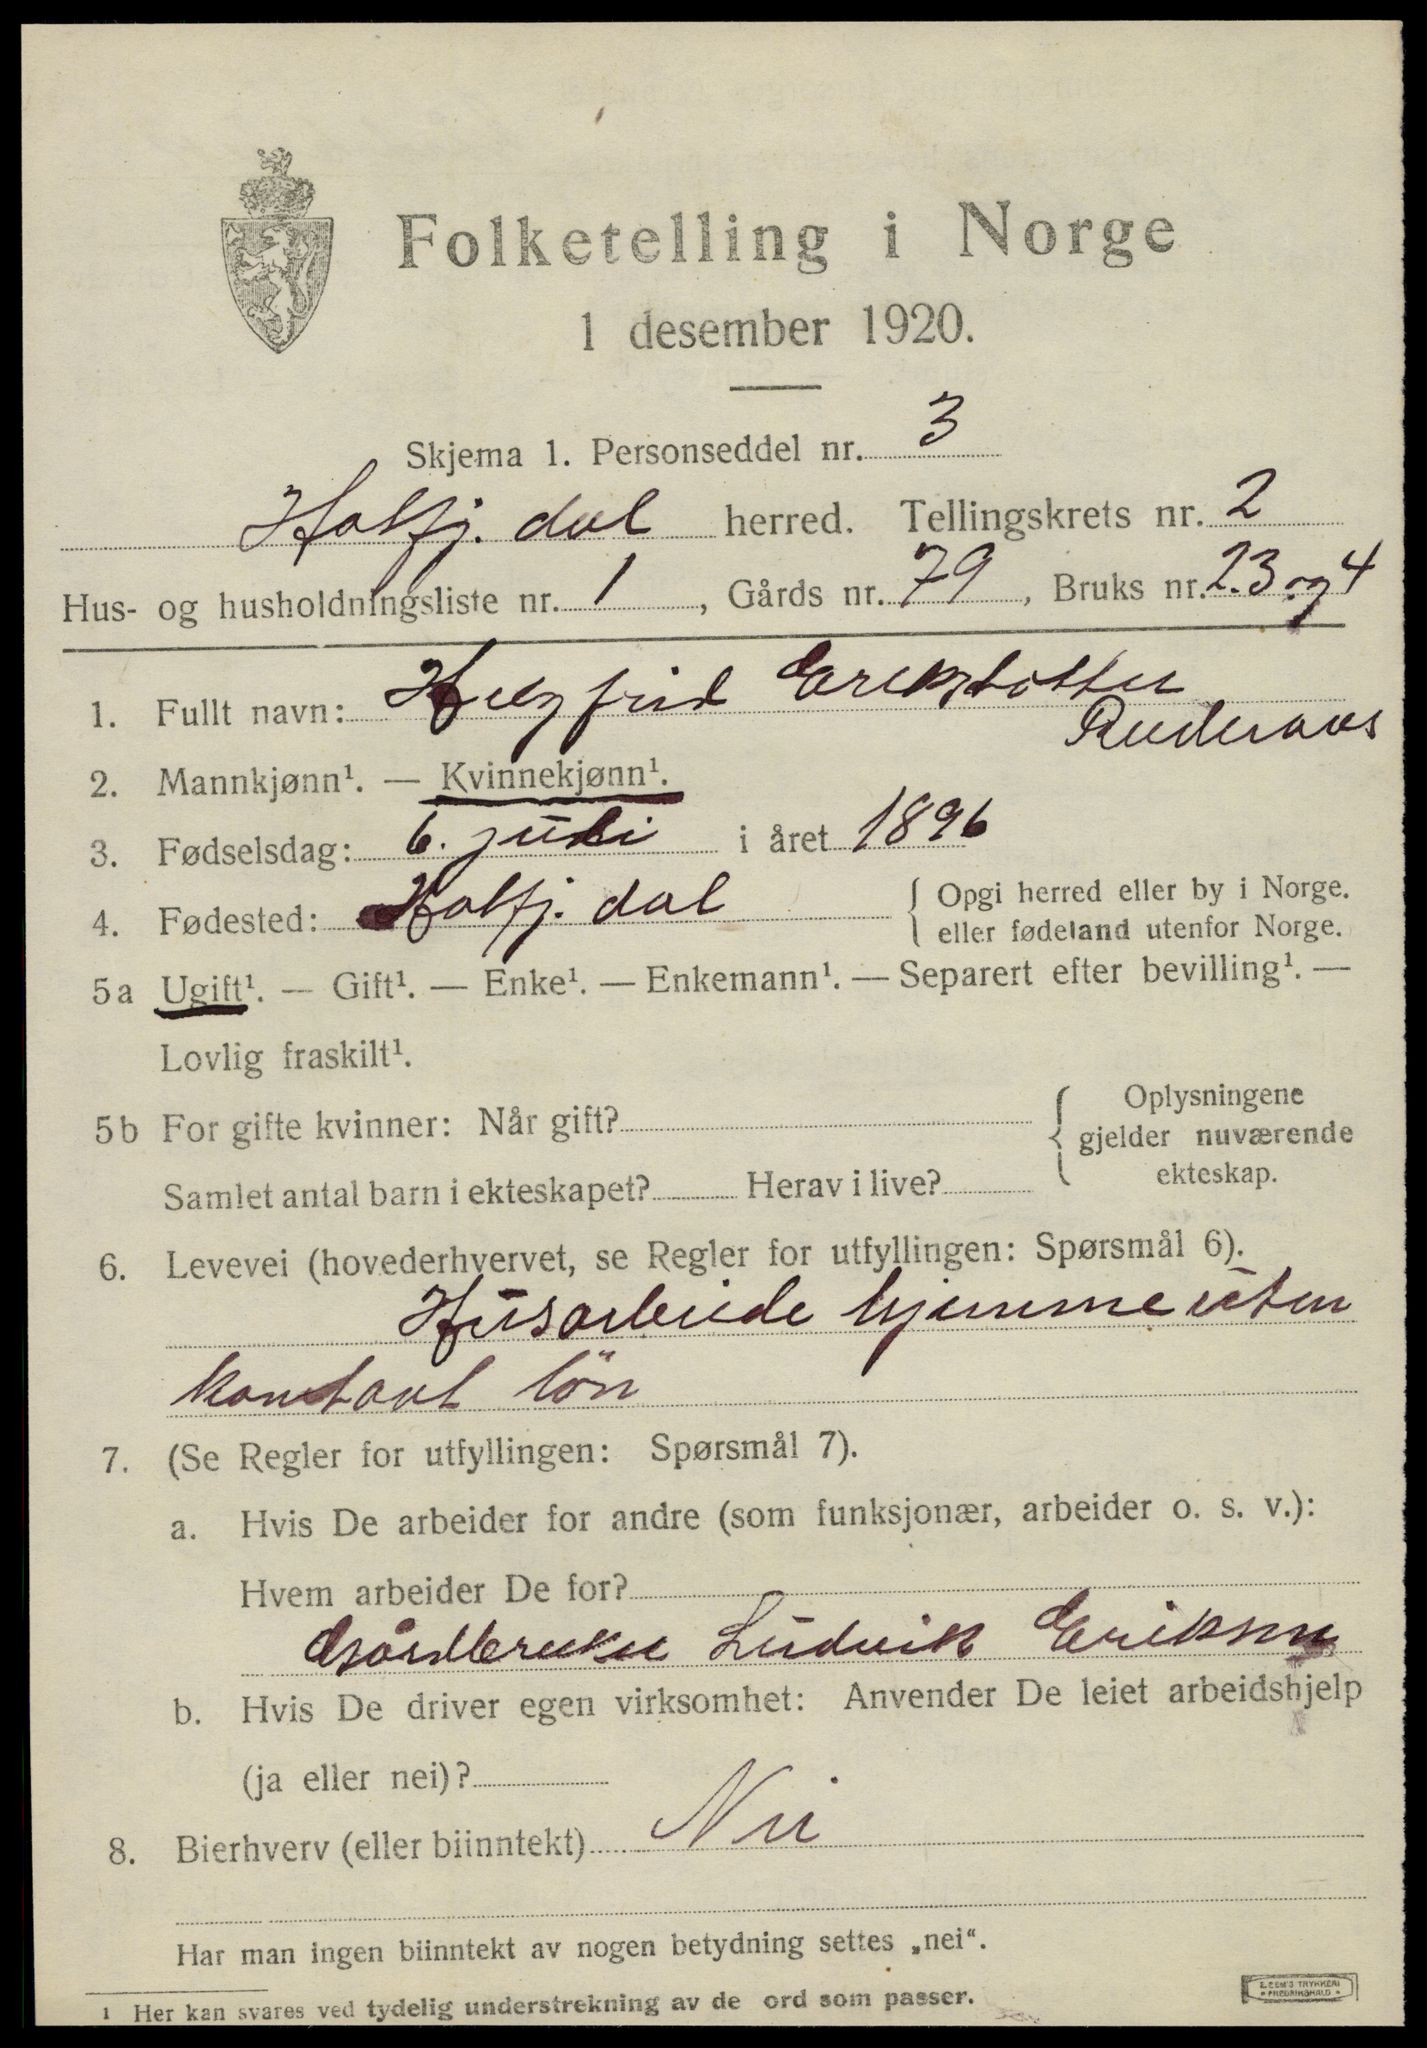 Folketelling i Norge
1 desember 1920.
Skjema 1. Personseddel nr. 3
Holtfj. dal herred. Tellingskrets nr. 2
Hus- og husholdningsliste nr. 1, Gårds nr. 79, Bruks nr. 2.3 og 4
1. Fullt navn: Erikstötter
2. Mannkjønn¹. — Kvinnekjønn¹.
3. Fødselsdag: 6. juli i året 1896
4. Fødested: Holtfj. dal { Opgi herred eller by i Norge.
eller fødeland utenfor Norge.
5a Ugift¹. — Gift¹. — Enke¹. — Enkemann¹. — Separert efter bevilling¹. —
Lovlig fraskilt¹.
5b For gifte kvinner: Når gift? { Oplysningene
gjelder nuværende
ekteskap.
Samlet antal barn i ekteskapet? Herav i live?
6. Levevei (hovederhvervet, se Regler for utfyllingen: Spørsmål 6).
Husarbeide hjemme uten
kontant lön
7. (Se Regler for utfyllingen: Spørsmål 7).
a. Hvis De arbeider for andre (som funksjonær, arbeider o. s. v.):
Hvem arbeider De for?
Gårdbruker Ludvik Eriksen
b. Hvis De driver egen virksomhet: Anvender De leiet arbeidshjelp
(ja eller nei)?
8. Bierhverv (eller biinntekt) Nei
Har man ingen biinntekt av nogen betydning settes „nei“.
1 Her kan svares ved tydelig understrekning av de ord som passer.